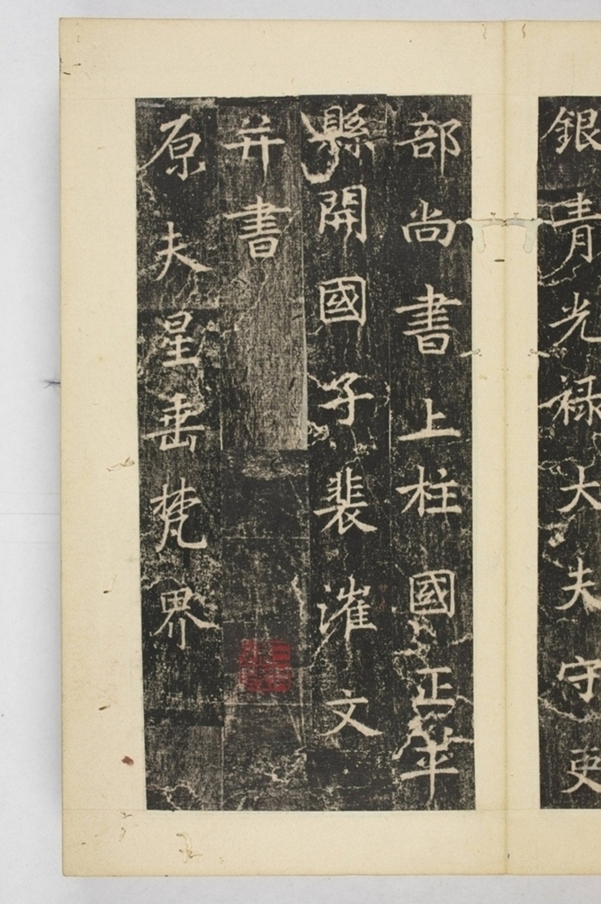 銀青光禄大夫守吏
部尚書上柱國正平
縣開國子裴漼文
并書
原夫星垂梵界